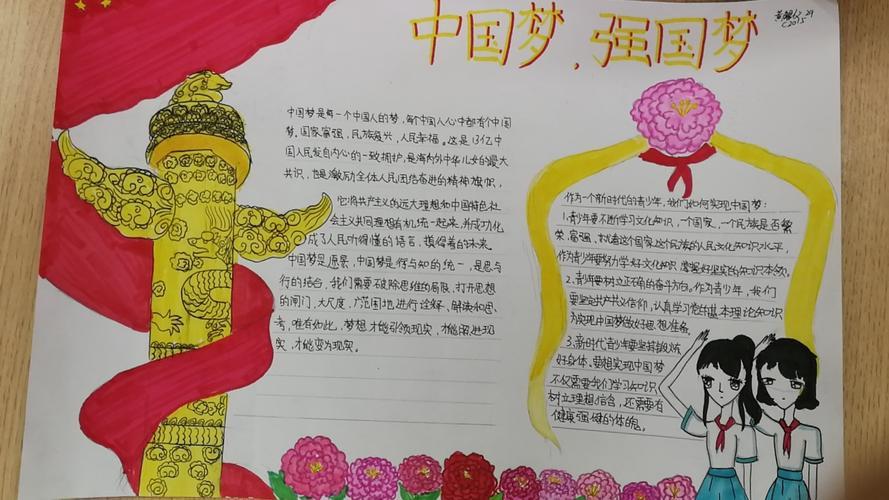 中国梦，强国梦
中国梦是每一个中国人的梦，每个中国人心中都有个中国
梦。国家富强，民族复兴，人民幸福。这是13亿中
国人民发自内心的一致拥护，是海内外中华儿女的最大
共识，也是激励全体人民团结奋进的精神旗帜，
它将共产主义的远大理想和中国特色社
会主义共同理想有机统一起来，并成功化
成了人民听得懂的语言，摸得着的未来。
中国梦是愿景，中国梦是行与知的统一，是思与
行的结合，我们需要破除思维的局限，打开思想
的闸门，大尺度、广范围地进行诠释、解读和思
考，唯有如此，梦想才能引领现实，才能
实，才能变为现实。
作为一个新时代的青少年，我们如何实现中国梦：
1.青少年要不断学习文化知识，一个国家，一个民族是否繁
荣、富强，就看这个国家这个民族的人民文化知识水平，
作为青少年要努力学好文化知识
2.青少年要树立正确的奋斗方向。作为青少年，我们
要坚定共产主义信仰，认真学习党的基本理论知识
为实现中国梦做好思想准备。
3.新时代青少年要坚持锻炼
好身体。要想实现中国梦
不仅需要我们学习知识
树立理想信念，还需要有
健康强健的体魄。